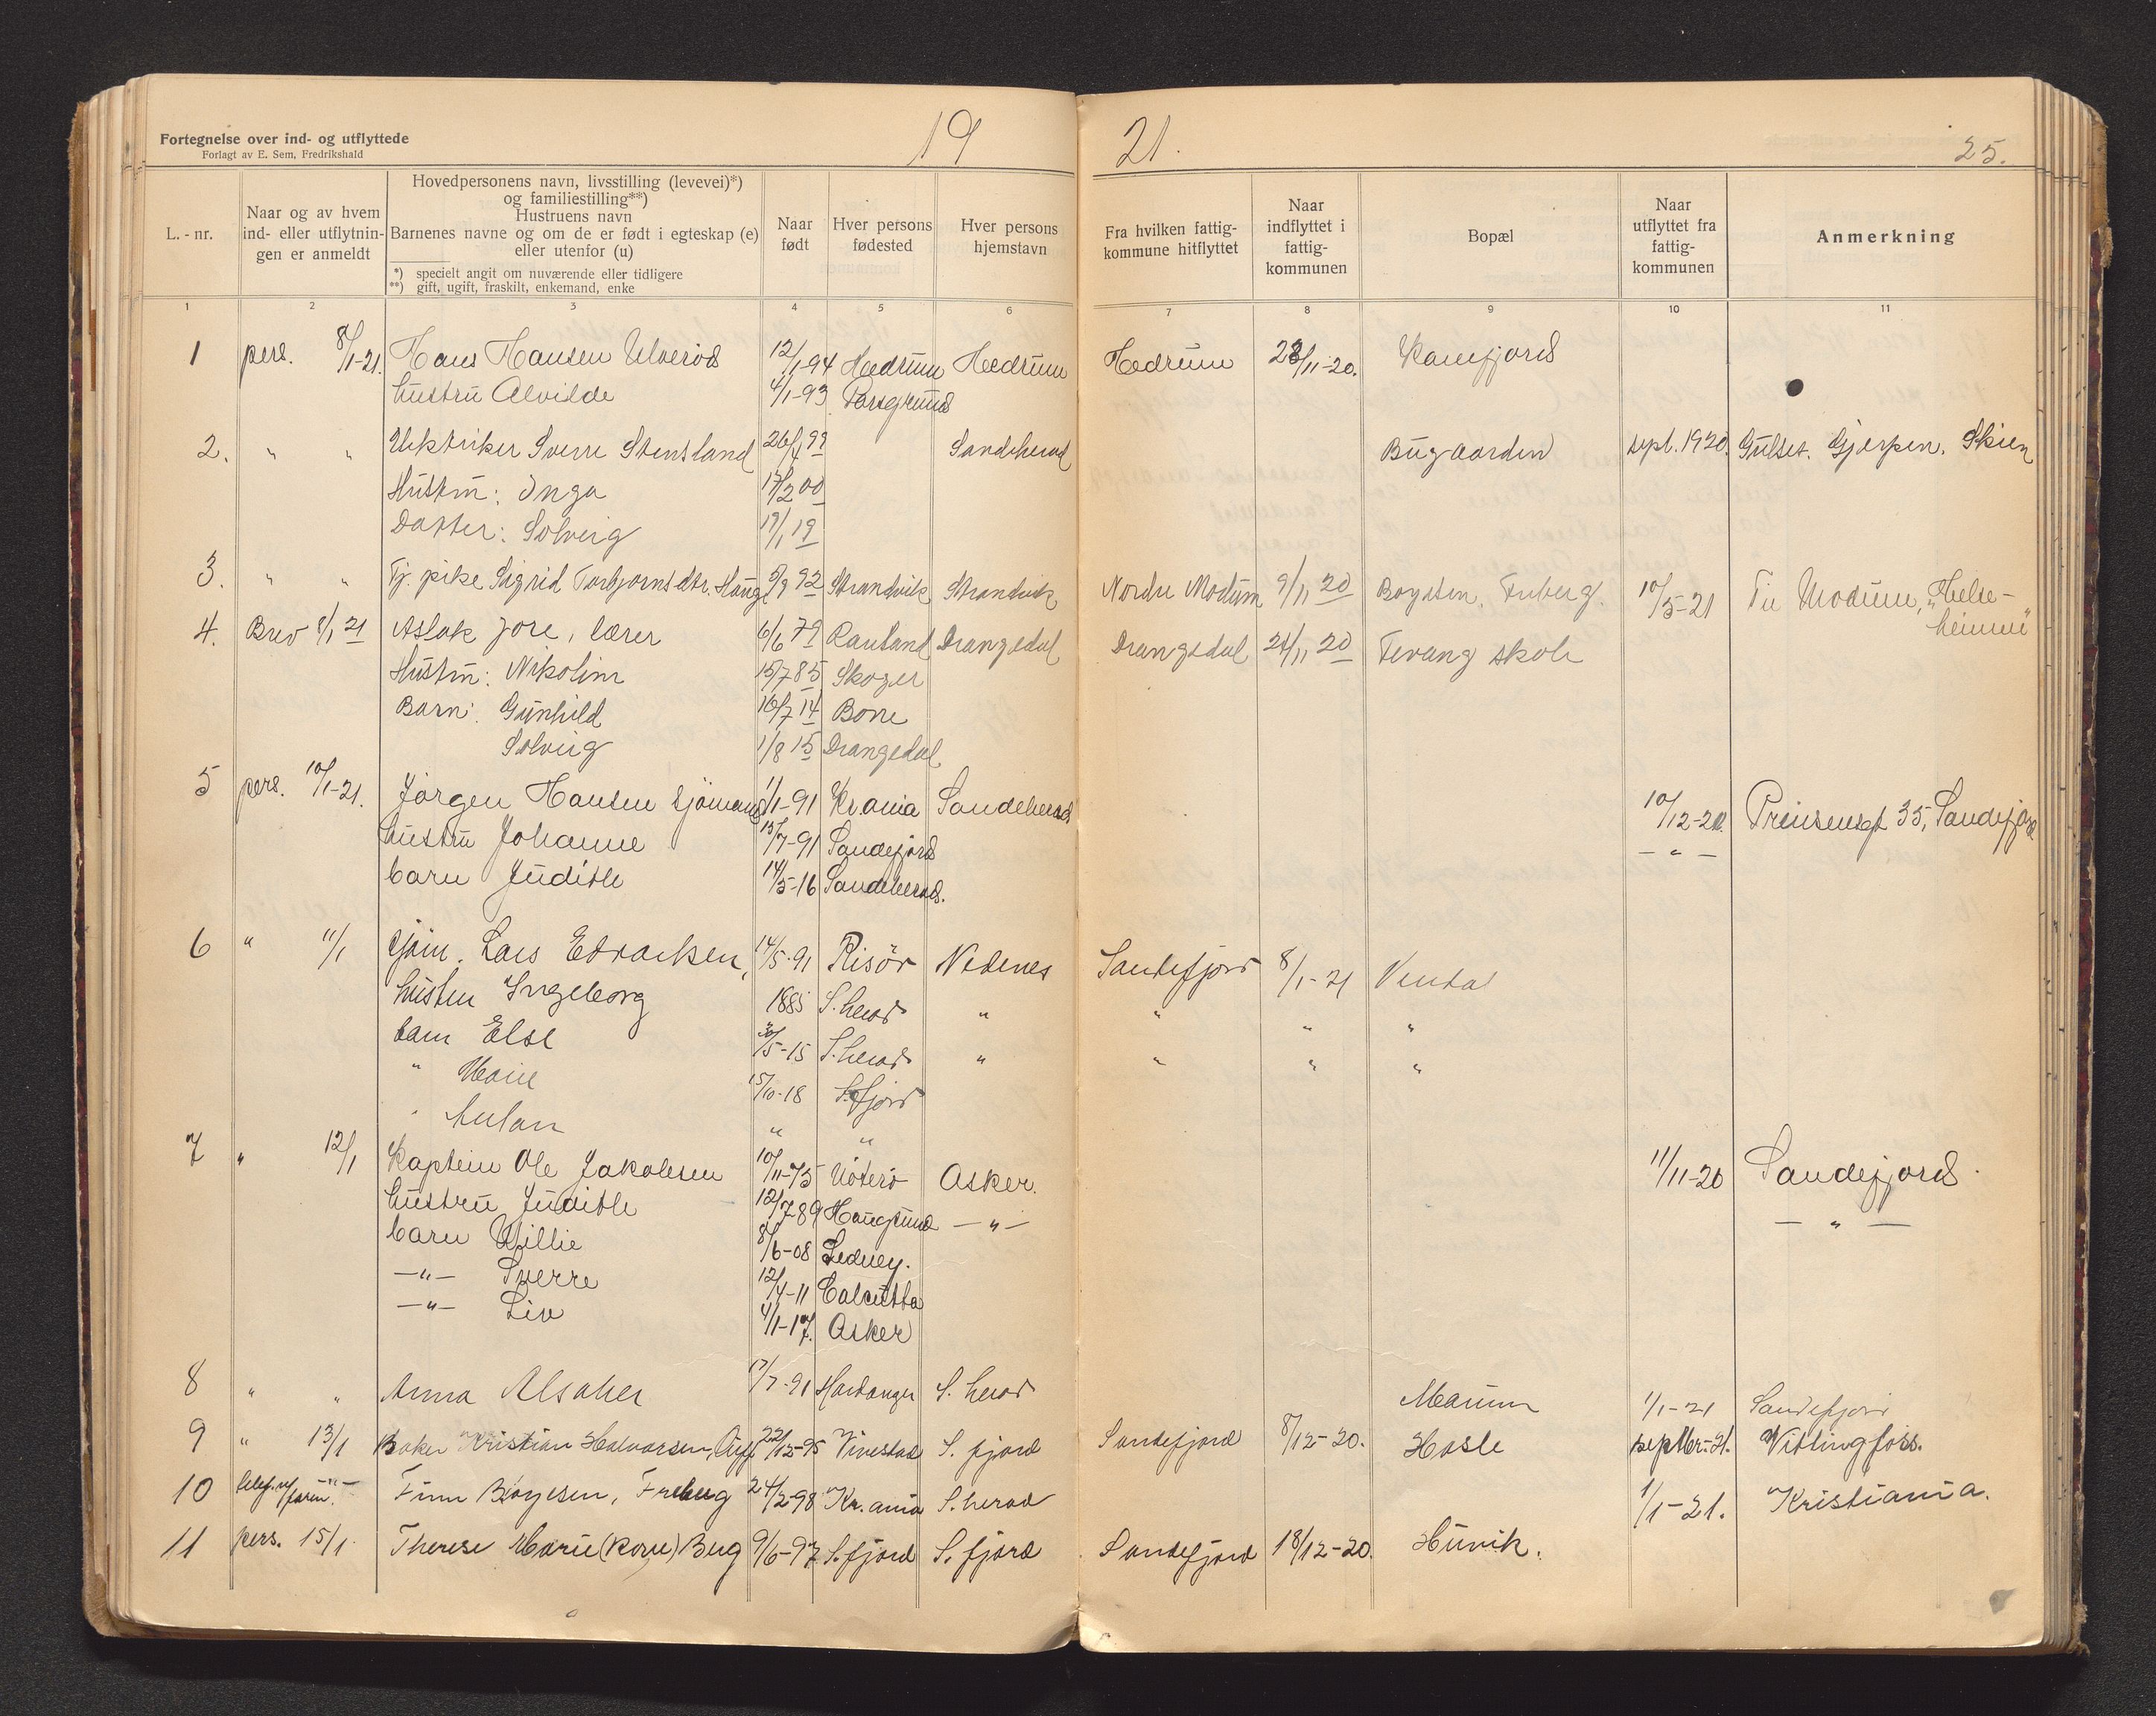 Fortegnelse over ind- og utflyttede
Forlagt av E. Sem, Fredrikshald
19 21.
25.
L.-nr.
Naar og av hvem ind- eller utflytningen er anmeldt
Hovedpersonens navn, livsstilling (levevei)*)
og familiestilling**)
Hustruens navn
Barnenes navne og om de er født i egteskap (e)
eller utenfor (u)
*) specielt angit om nuværende eller tidligere
**) gift, ugift, fraskilt, enkemand, enke
Naar født
Hver persons fødested
Hver persons hjemstavn
Fra hvilken fattigkommune hitflyttet
Naar indflyttet i fattigkommunen
Bopæl
Naar utflyttet fra fattigkommunen
Anmerkning
1 2 3 4 5 6 7 8 9 10 11
1 pers. 8/1-21. Hans Hansen Ulverød 12/1-94 Hedrum Hedrum Hedrum 28/11-20. Kamfjord
hustru Alvilde 4/1-93 Porsgrund
2. " " Elektriker Sverre Stensland 26/4 99 Sandeherad Bugaarden sept. 1920. Gulset. Gjerpen. Skien
Hustru: Inga 17/2 00
Datter: Solveig 19/1 19
3. " " Tj. pike Sigrid Torbjørnsdtr. Haug 5/9 92 Strandvik Strandvik Nordre Modum 9/11 20 Bøgsten. Freberg. 10/5-21 Til Modum, "Helse-
heimen"
4. Brev 8/1 21 Aslak Jore, lærer 6/6 79 Rauland Drangedal Drangedal 24/11 20 Fevang skole
Hustru: Nikoline 15/7 85 Skoger
Barn: Gunhild 16/7 14 Bone
Solveig 1/8 15 Drangedal
5 pers. 10/1-21. Jørgen Hansen sjømand 1/1-91 Kr.ania Sandeherad 10/12-20. Prinsensgt 35, Sandefjord
hustru Johanne 13/7-91 Sandefjord — " —
barn Judith 14/5-16 Sandeherad.
6 " 11/1 Sjøm. Lars Edvardsen, 14/5-91 Risør Nedenes Sandefjord 8/1-21 Venta
hustru Ingeborg 1885 S.herad " " " "
barn Else 30/5-15 S.herad " " " "
" Marie 15/10-18 S.fjord
" " "
7 " 12/1 Kaptein Ole Jakobsen 10/11-75 Nøterø Asker. 11/11-20 Sandefjord.
hustru Judith 12/7 89 Haugsund —"— — " —
barn Willie 8/6-08 Sedney.
—"— Sverre 12/4-11 Calcutta
—"— Liv 4/1-17. Asker
8 " " Anna Alsaker 17/7-91 Hardanger S. herad Marum 1/1-21 Sandefjord
9 " 13/1 Baker Kristian Halvorsen, 22/12-95 Vivestad S. fjord Sandefjord 8/12-20. Hasle septbr.-21. Vittingfoss.
10 —"— Finn Bøgesen, Freberg 24/2-98 Kr.ania S.herad 1/1-21. Kristiania.
11 pers. 15/1. Therese Marie Berg 9/6-97 S.fjord S. fjord Sandefjord 18/12-20. Hunik.